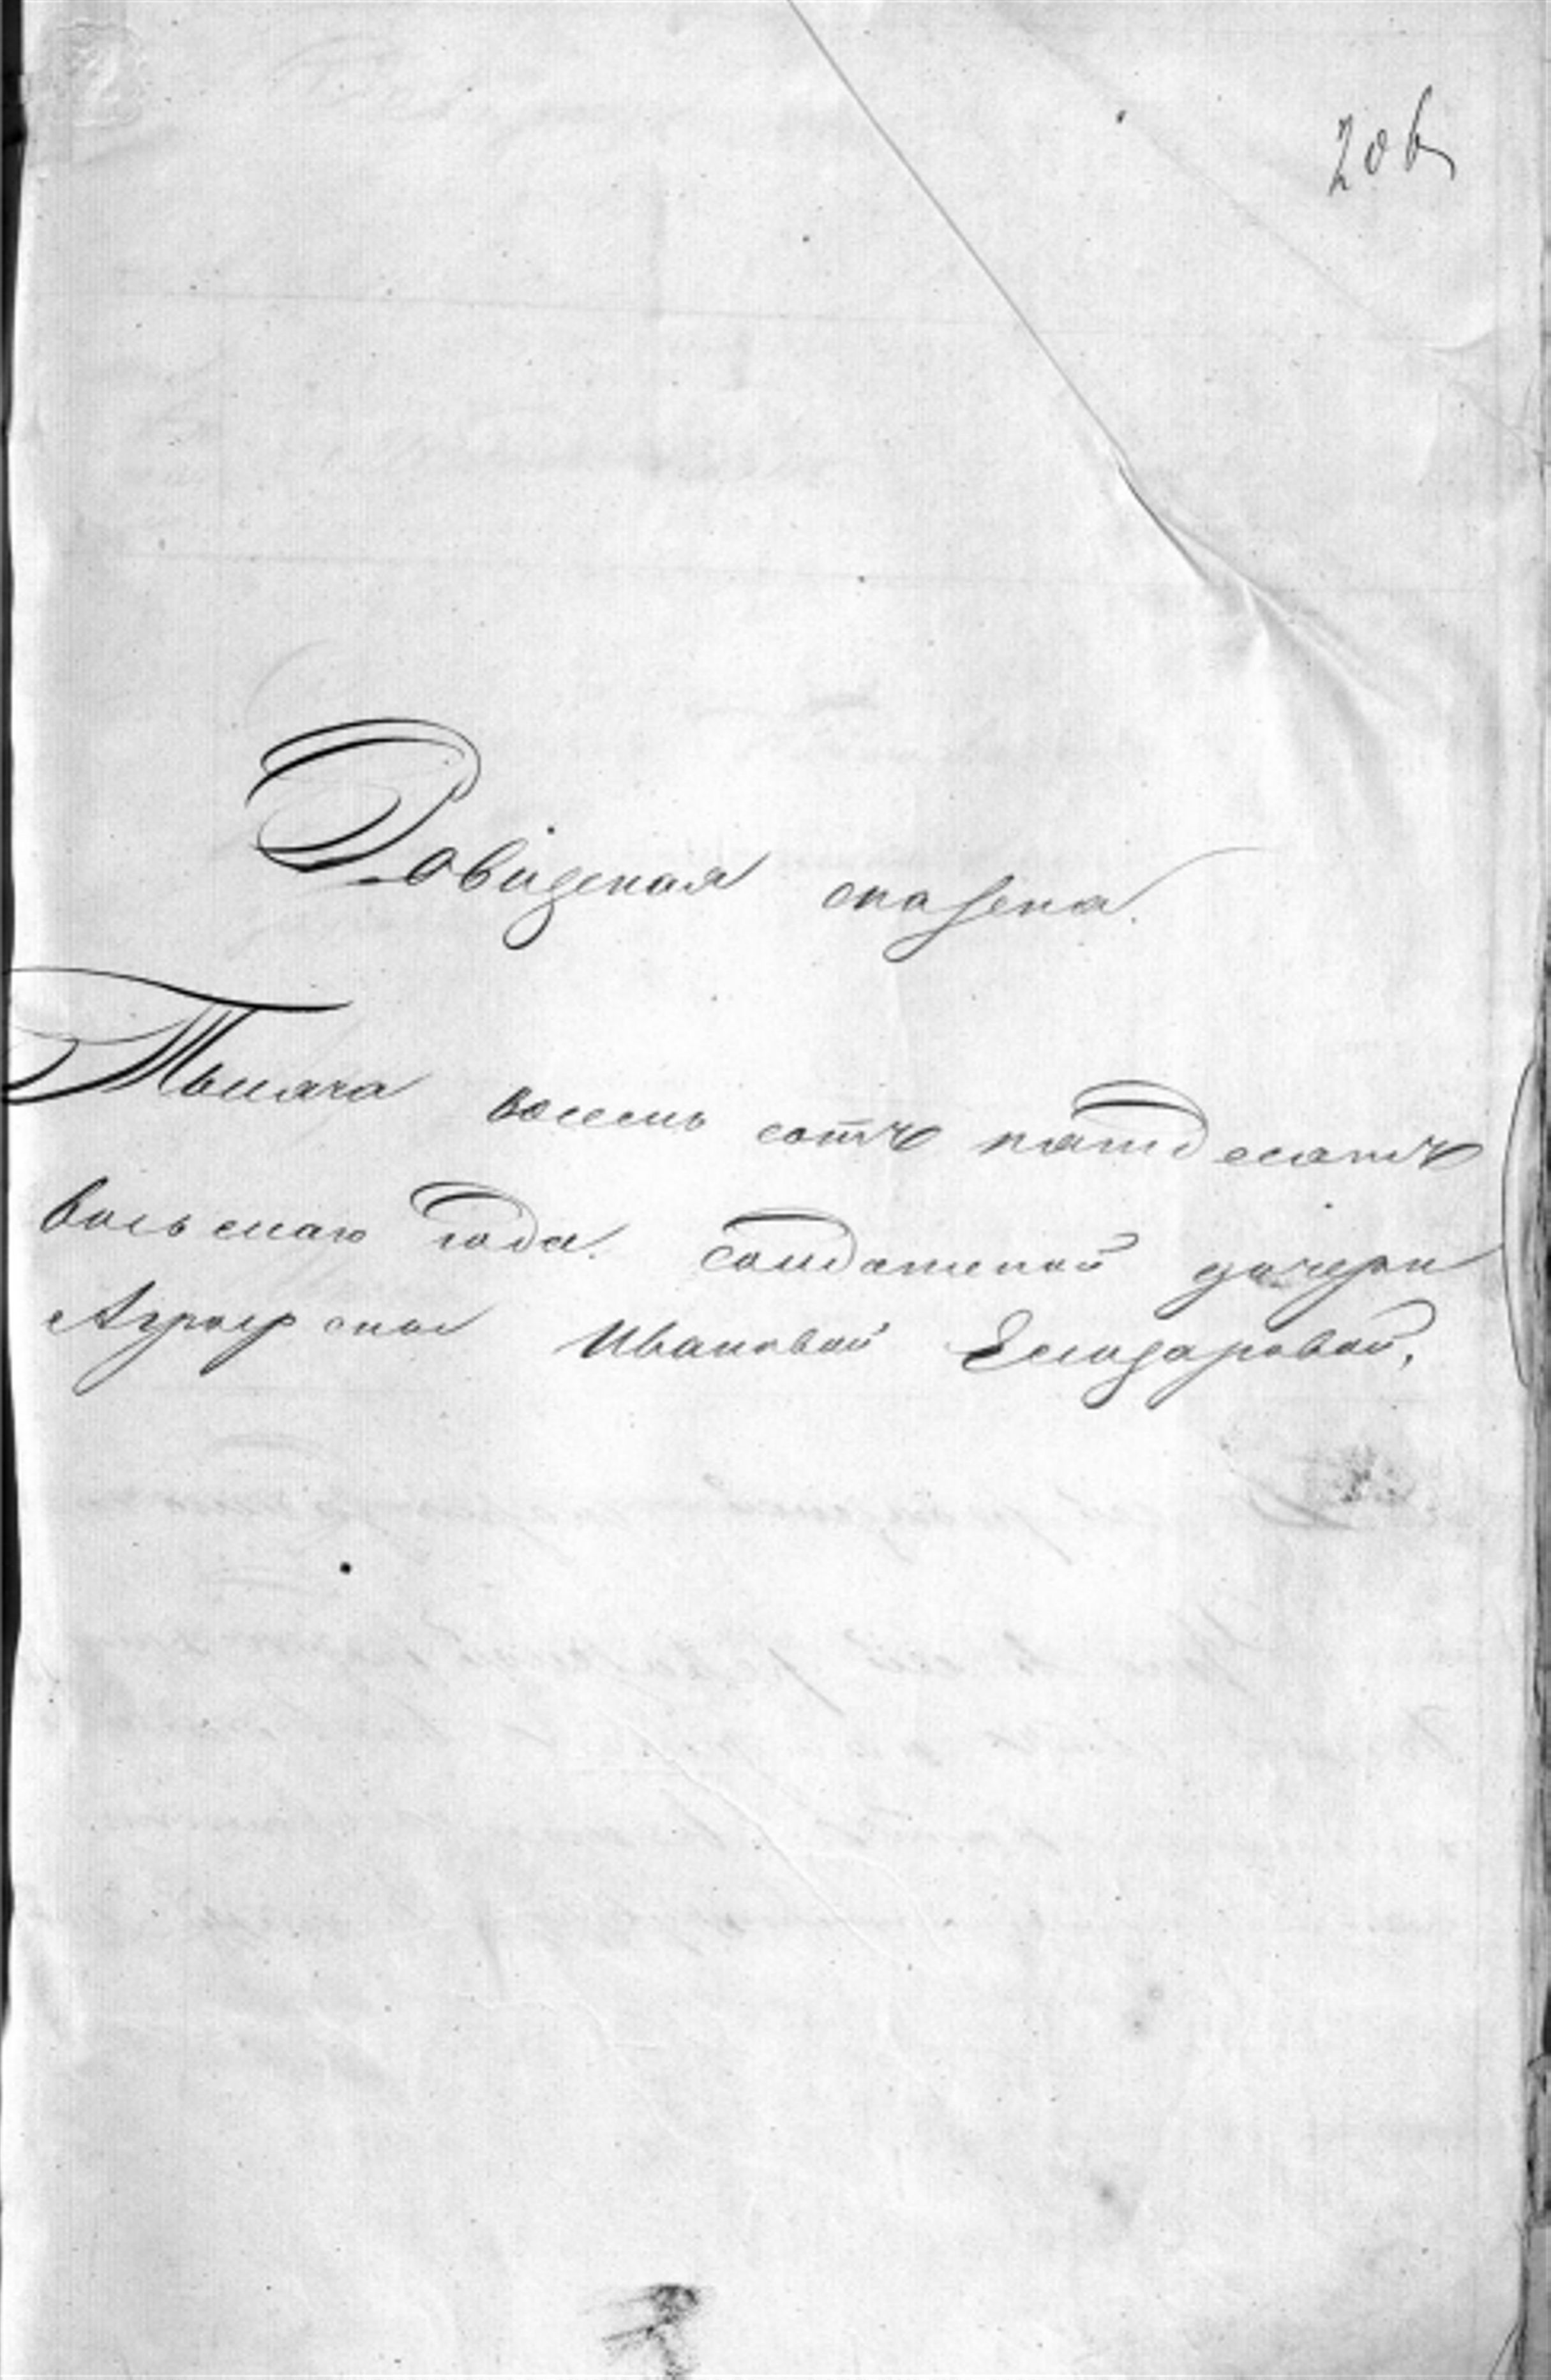 206
Ревизская сказка.
Тысяча восемь сотъ пятдесятъ
восьмаго года. Солдатской дочери
Ивановой